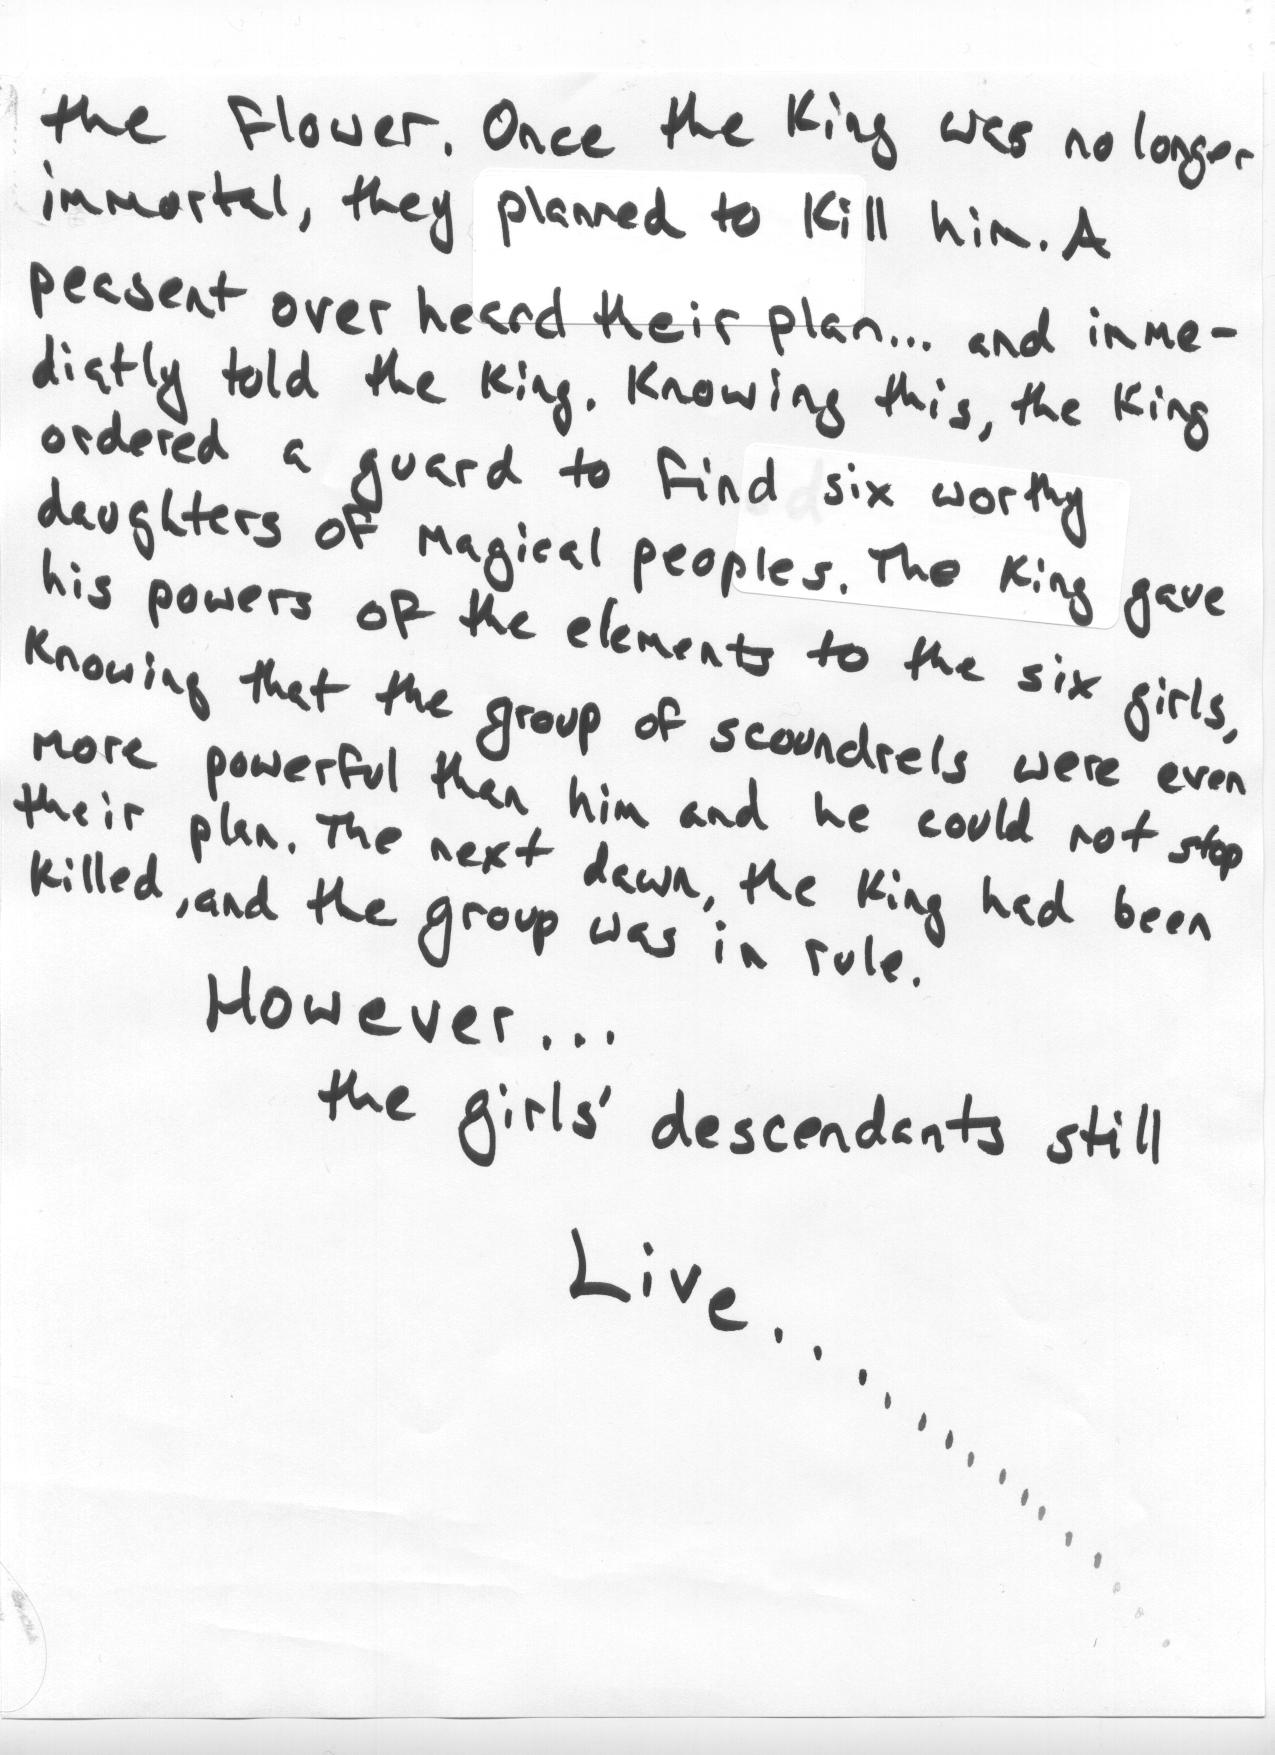 the Flower. Once the King was no longer
immortal, they planned to Kill him. A
peasent over heard their plan... and imme-
diatly told the King. Knowing this, the King
ordered a guard to find six worthy
daughters of magical peoples. The King gave
his powers of the elements to the six girls,
Knowing that the group of scoundrels were even
more powerful than him and he could not stop
their plan. The next dawn, the King had been
Killed, and the group was in rule.
However...
the girls' descendants still
Live...................